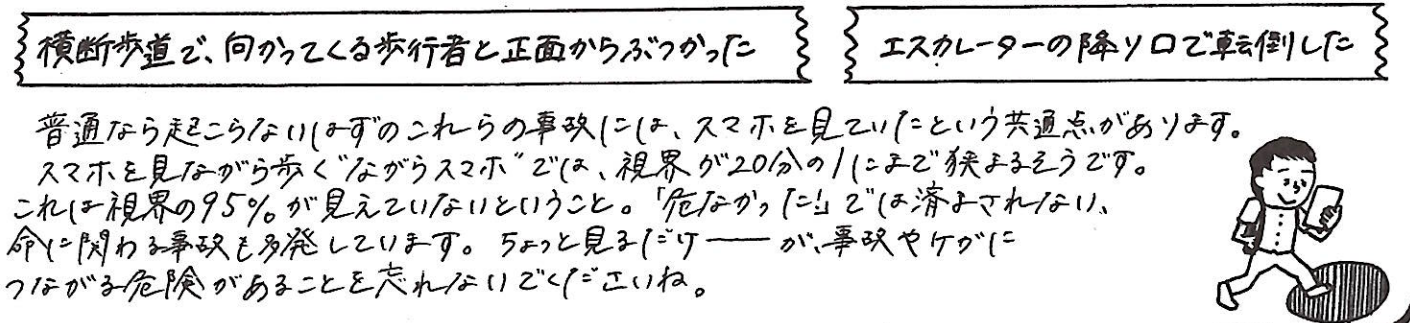 横断歩道で、向かってくる歩行者と正面からぶつかった
エスカレーターの降り口で転倒した
普通なら起こらないはずのこれらの事故には、スマホを見ていたという共通点があります。
スマホを見ながら歩く“ながらスマホ”では、視界が20分の1にまで狭まるそうです。
これは視界の95%が見えていないということ。「危なかった!」では済まされない、
命に関わる事故も多発しています。ちょっと見るだけ――が、事故やケガに
つながる危険があることを忘れないでくださいね。